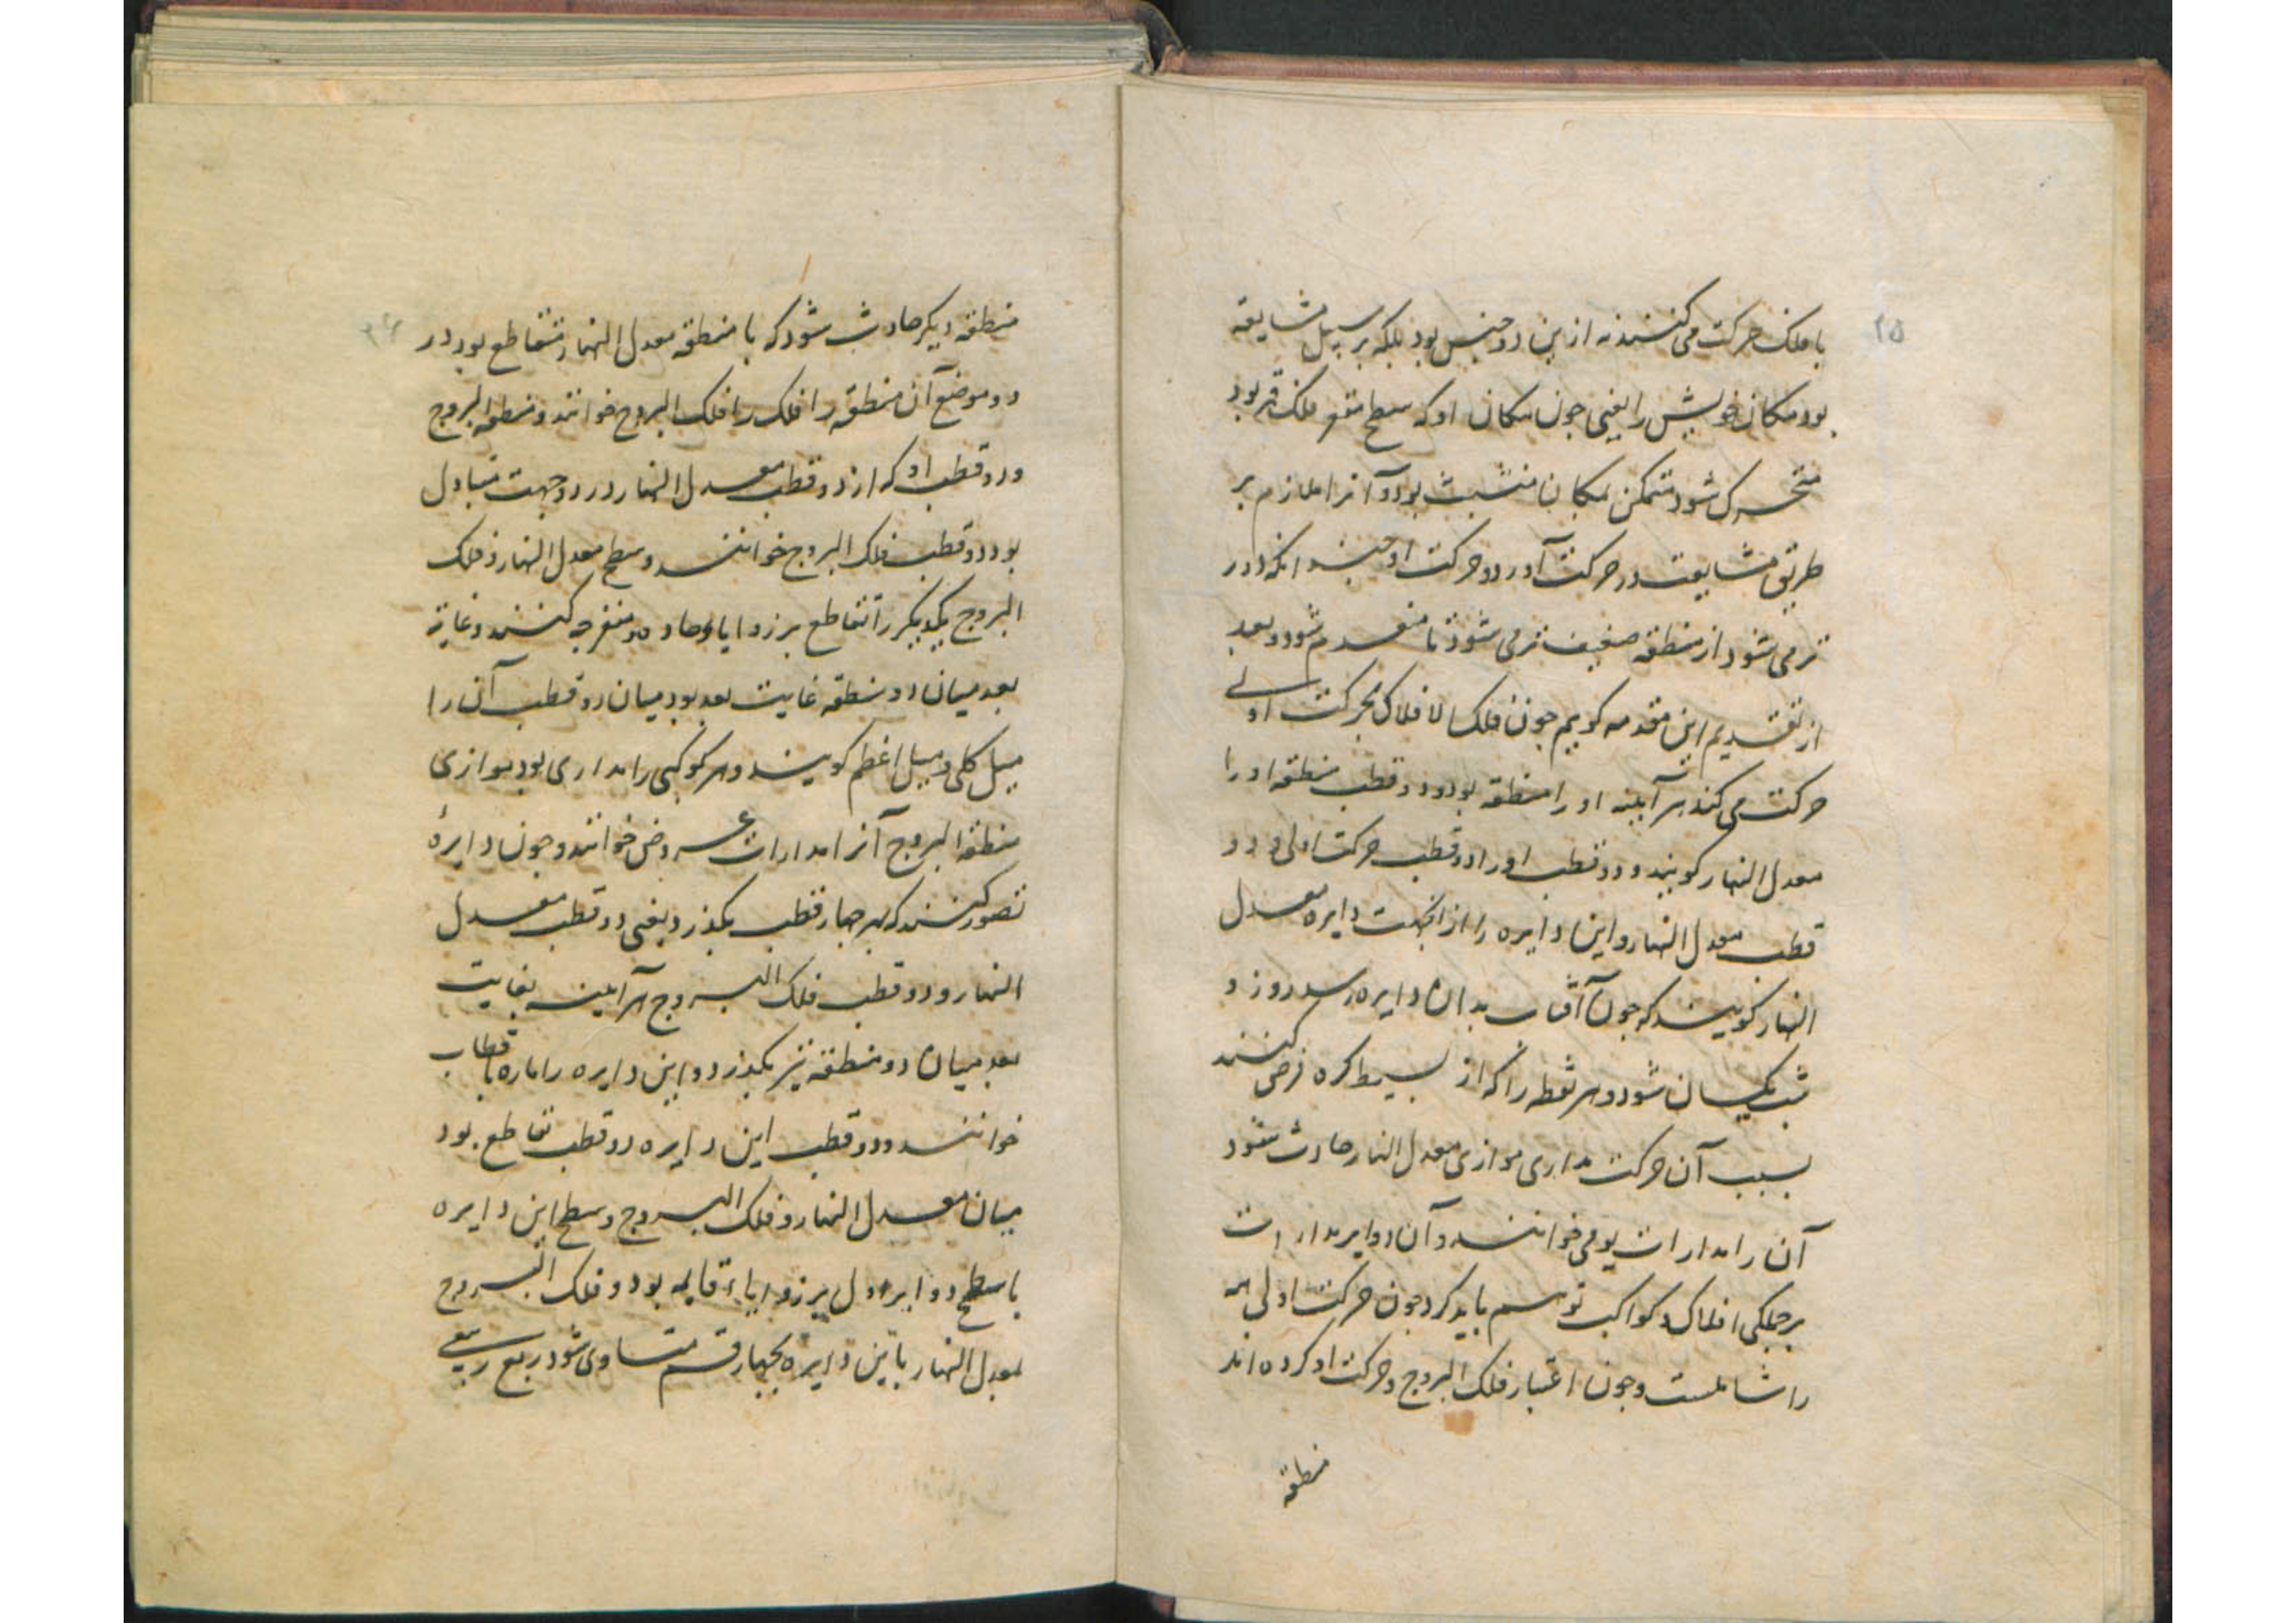 ۲۵
با فلک حرکت می کنند نه ازین دو جنس بود بلکه بر سبیل مشایعة
بود مکان خویش را یعنی جون مکان او که سطح مقعر فلک قمر بود
متحرک شود متمکن بمکان متشبث بود و آنرا ملازم بر
طریق مشایعت در حرکت آورد و حرکت او جندانکه دور
تر می شود از منطقه ضعیف تر می شود تا منعدم شود و بعد
از تقدیم این مقدمه کوییم جون فلک الافلاک بحرکت اولی
حرکت می کند هر آیینه او را منطقه بود و دو قطب منطقه او را
معدل النهار کویند و دو قطب او را دو قطب حرکت اولی و دو
قطب معدل النهار و این دایره را از انجهت دایره معدل
النهار کویند که جون آفتاب بدان دایره رسد روز و
شب یکسان شود و هر نقطه را که از بسیط کره فرض کنند
بسبب آن حرکت مداری موازی معدل النهار حادث شود
آن را مدارات یومی خوانند و آن دوایر مدارات
بر جملکی افلاک و کواکب توسم باید کرد جون حرکت اولی همه
را شاملست و جون اعتبار فلک البروج و حرکت او کرده اند
منطقة
۲۶
منطقه دیکر حادث شود که با منطقه معدل النهار متقاطع بود در
دو موضع آن منطقه را فلک را فلک البروج خوانند و منطقه البروج
و دو قطب او که از دو قطب معدل النهار در دو جهت متبادل
بود دو قطب فلک البروج خوانند و سطح معدل النهار و فلک
البروج یکدیکر را تقاطع بر زوایاء حاده و منفرجه کنند و غایة
بعد میان دو منطقه غایت بعد بود میان دو قطب آن را
میل کلی و میل اعظم کویند و هر کوکبی را مداری بود موازی
منطقة البروج آنرا مدارات عروض خوانند و جون دایرهٔ
تصور کنند که بهر جهار قطب بکذرد یعنی دو قطب معدل
النهار و دو قطب فلک البروج هر آینه بغایت
بعد میان دو منطقه نیز بکذرد و این دایره را ماره باقطاب
خوانند و دو قطب این دایره دو قطب تقاطع بود
میان معدل النهار و فلک البروج و سطح این دایره
با سطح دوایر اول بر زوایاء قایمه بود و فلک البروج
معدل النهار باین دایره بجهار قسم متساوی شود ربع ربیعی